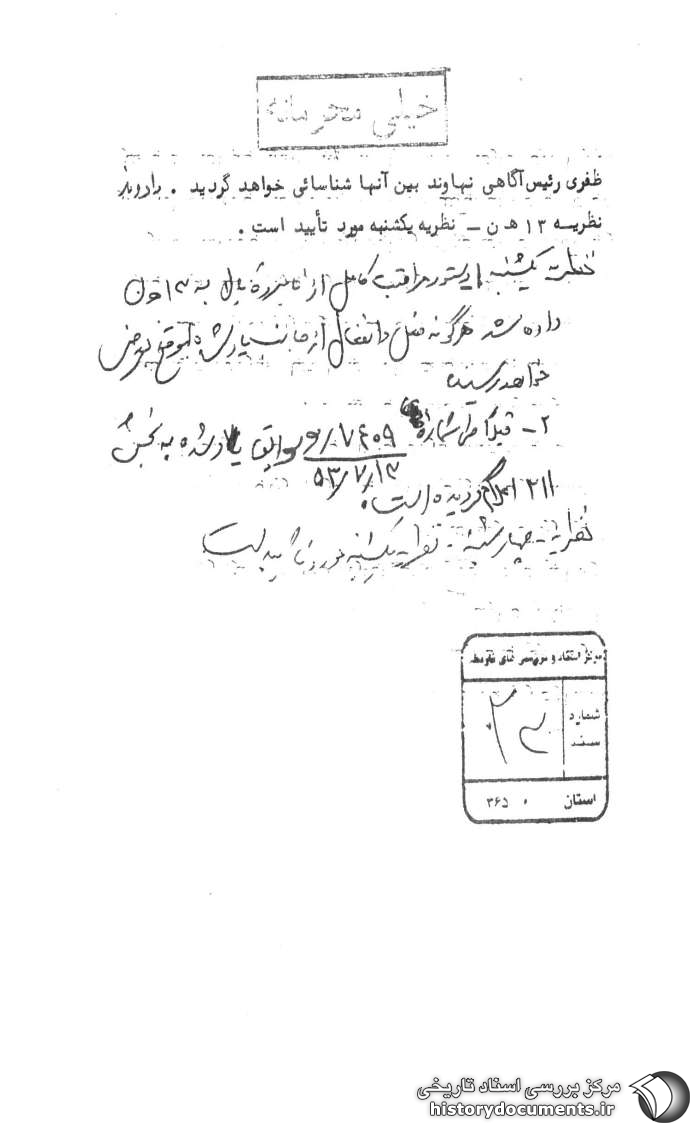 خیلی محرمانه
ظفری رئیس آگاهی نهاوند بین آنها شناسائی خواهد گردید . داروند
نظریه ۱۳ هـ ن ــ نظریه یکشنبه مورد تأیید است .
یکشنبه ۱ـ دستور مراقبت کامل از نامبرده بالا به
داده شد هرگونه فعل و انفعال از جانب یادشده بموقع بعرض
خواهد رسید
۲ـ قبلا طی شماره سوابق یادشده به بخش
۵۳/۷/۱۳
۲۱۱ اعلام گردیده است.
نظریه چهارشنبه ـ نظریه یکشنبه مورد تأیید است
مرکز اسناد و
شماره
سند
استان ۳۶۵
مرکز بررسی اسناد تاریخی
historydocuments.ir